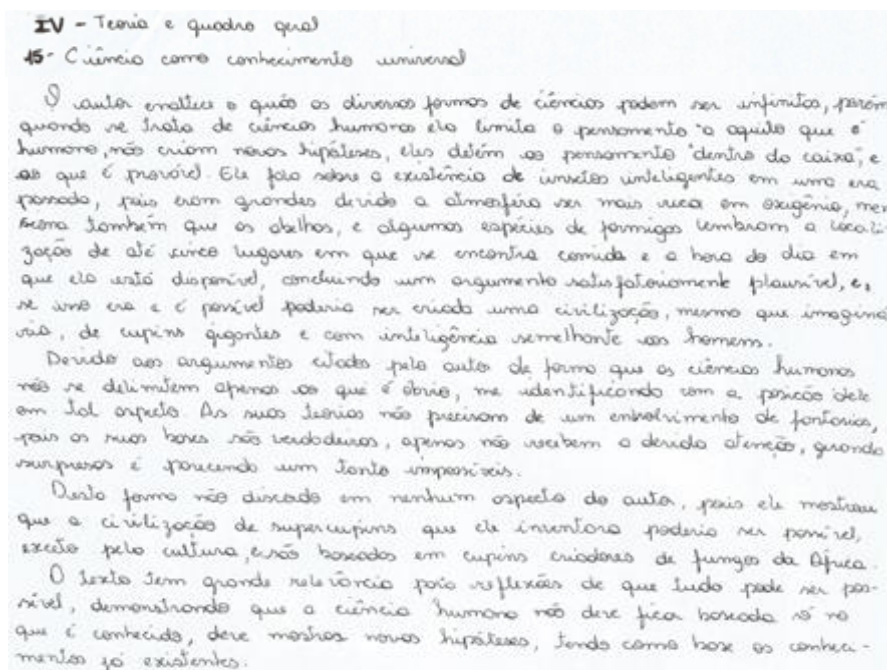 IV - Teoria e quadro geral
15- Ciência como conhecimento universal
O autor enaltece o quão as diversas formas de ciências podem ser infinitas, porém
quando se trata de ciências humanas ela limita o pensamento a aquilo que é
humano, não criam novas hipóteses, eles detém ao pensamento "dentro da caixa", e
ao que é provável. Ele fala sobre a existência de insetos inteligentes em uma era
passada, pois eram grandes devido a atmosfera ser mais rica em oxigênio, men
ciona também que as abelhas, e algumas espécies de formigas lembram a locali-
zação de até cinco lugares em que se encontra comida e a hora do dia em
que ela está disponível, concluindo um argumento satisfatoriamente plausível, e,
se isso era e é possível poderia ser criada uma civilização, mesmo que imaginá
ria, de cupins gigantes e com inteligência semelhante aos homens.
Devido aos argumentos citados pelo autor de forma que as ciências humanas
não se delimitem apenas ao que é óbvio, me identificando com a posição dele
em tal aspecto. As suas teorias não precisam de um envolvimento de fantasias,
pois as suas bases são verdadeiras, apenas não recebem a devida atenção, gerando
surpresas e parecendo um tanto impossíveis.
Desta forma não discordo em nenhum aspecto do autor, pois ele mostrou
que a civilização de supercupins que ele inventara poderia ser possível,
exceto pela cultura, e são baseados em cupins criadores de fungos da África.
O texto tem grande relevância para reflexões de que tudo pode ser pos-
sível, demonstrando que a ciência humana não deve ficar baseada só no
que é conhecido, deve mostrar novas hipóteses, tendo como base os conheci-
mentos já existentes.